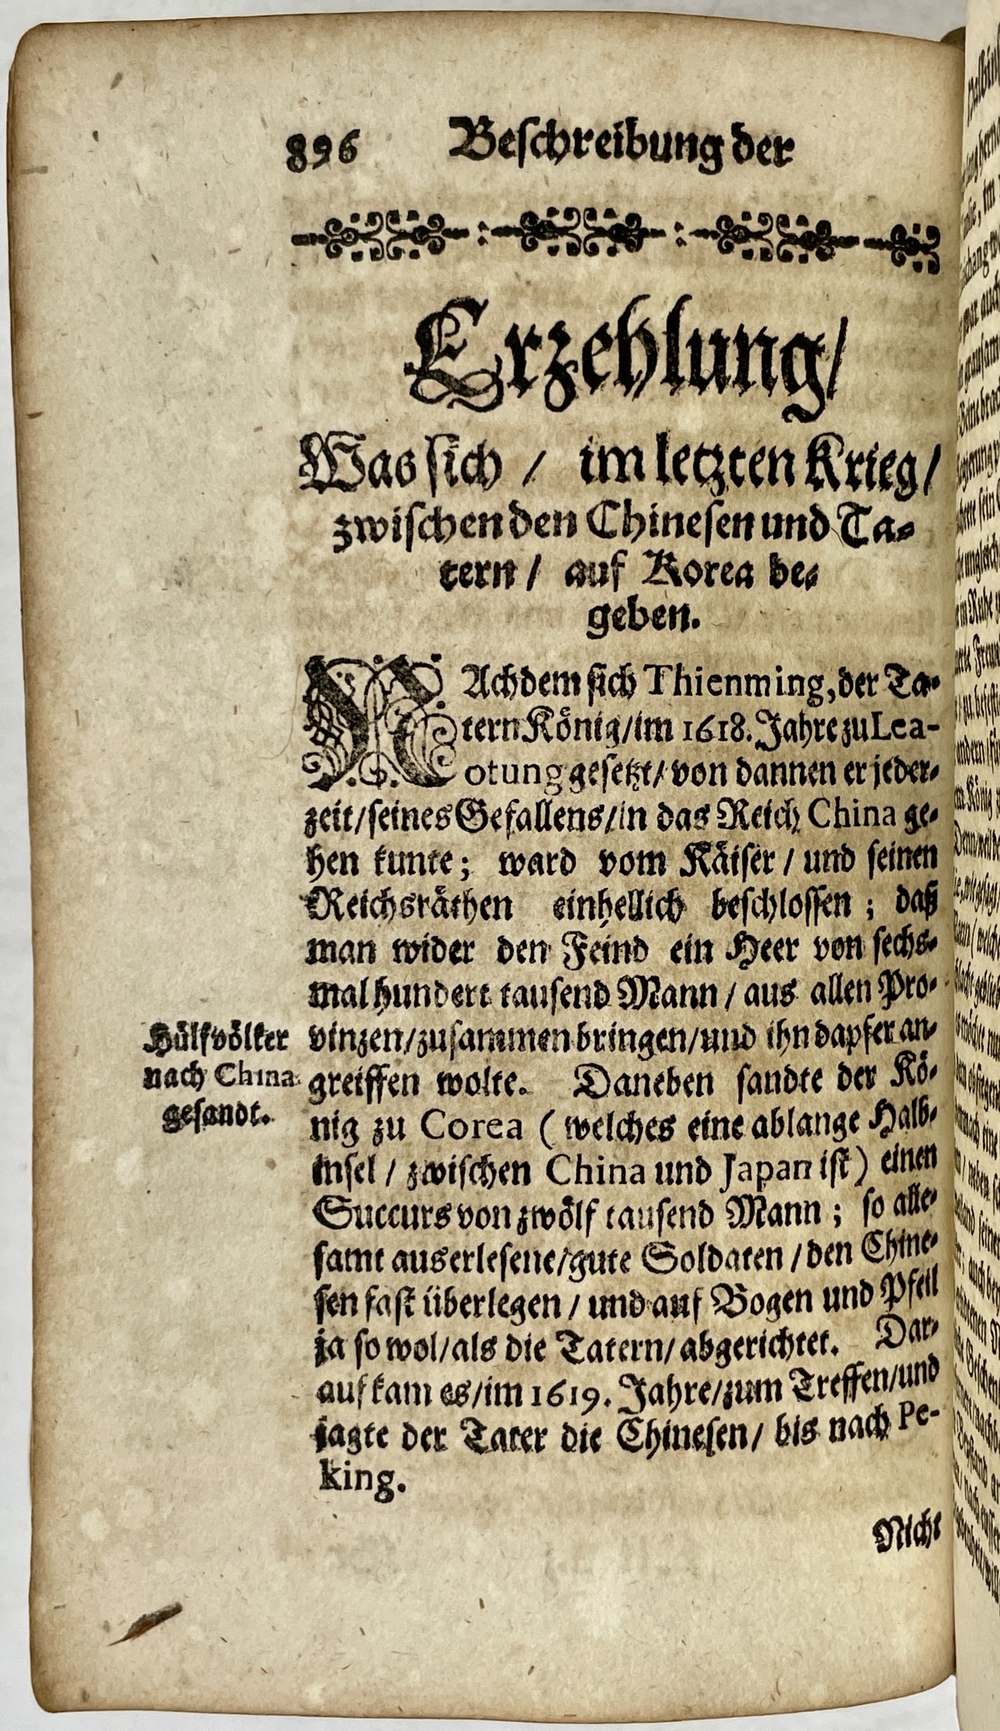 896 Beschreibung der
Erzehlung/
Was sich / im letzten Krieg/
zwischen den Chinesen und Ta-
tern / auf Korea be-
geben.
NAchdem sich Thienming, der Ta-
tern König/im 1618. Jahre zu Lea-
otung gesetzt/ von dannen er jeder-
zeit/seines Gefallens/in das Reich China ge-
hen kunte; ward vom Käiser / und seinen
Reichsräthen einhellich beschlossen ; daß
man wider den Feind ein Heer von sechs-
mal hundert tausend Mann / aus allen Pro-
vinzen/zusammen bringen/und ihn dapfer an-
greiffen wolte. Daneben sandte der Kö-
nig zu Corea ( welches eine ablange Halb-
insel / zwischen China und Japan ist) einen
Succurs von zwölf tausend Mann ; so alle-
samt auserlesene/gute Soldaten / den Chine-
sen fast überlegen / und auf Bogen und Pfeil
ja so wol/als die Tatern/ abgerichtet. Dar-
auf kam es/im 1619. Jahre/zum Treffen/und
jagte der Tater die Chinesen/ bis nach Pe-
king.
Hülfvölker
nach China
gesandt.
Nicht